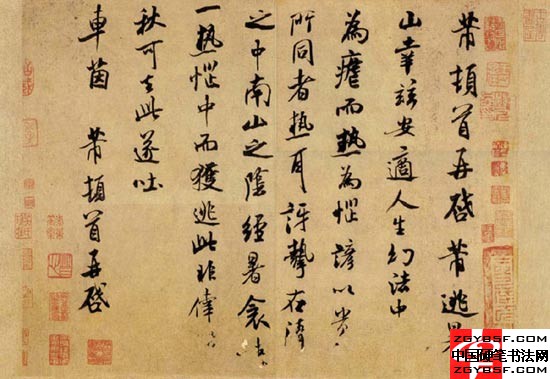 芾頓首再啓芾逃暑
山幸茲安適人生幻法中
為瘧而熱為惱諺以貴
所同者熱耳訝摯在清
之中南山之陰經暑衾
一熱惱中而獲逃此非偉
秋可去此遂吐
車茵 芾頓首再啓
ZGYBSF.COM
中国硬笔书法网
ZGYBSF.COM